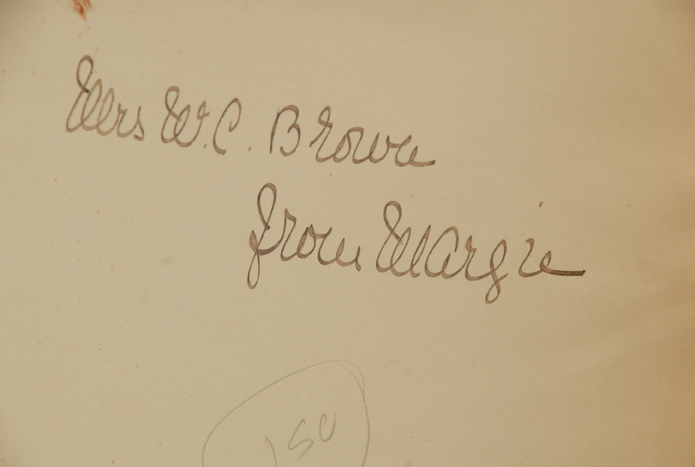 Mrs W.C. Brown
from Margie
150